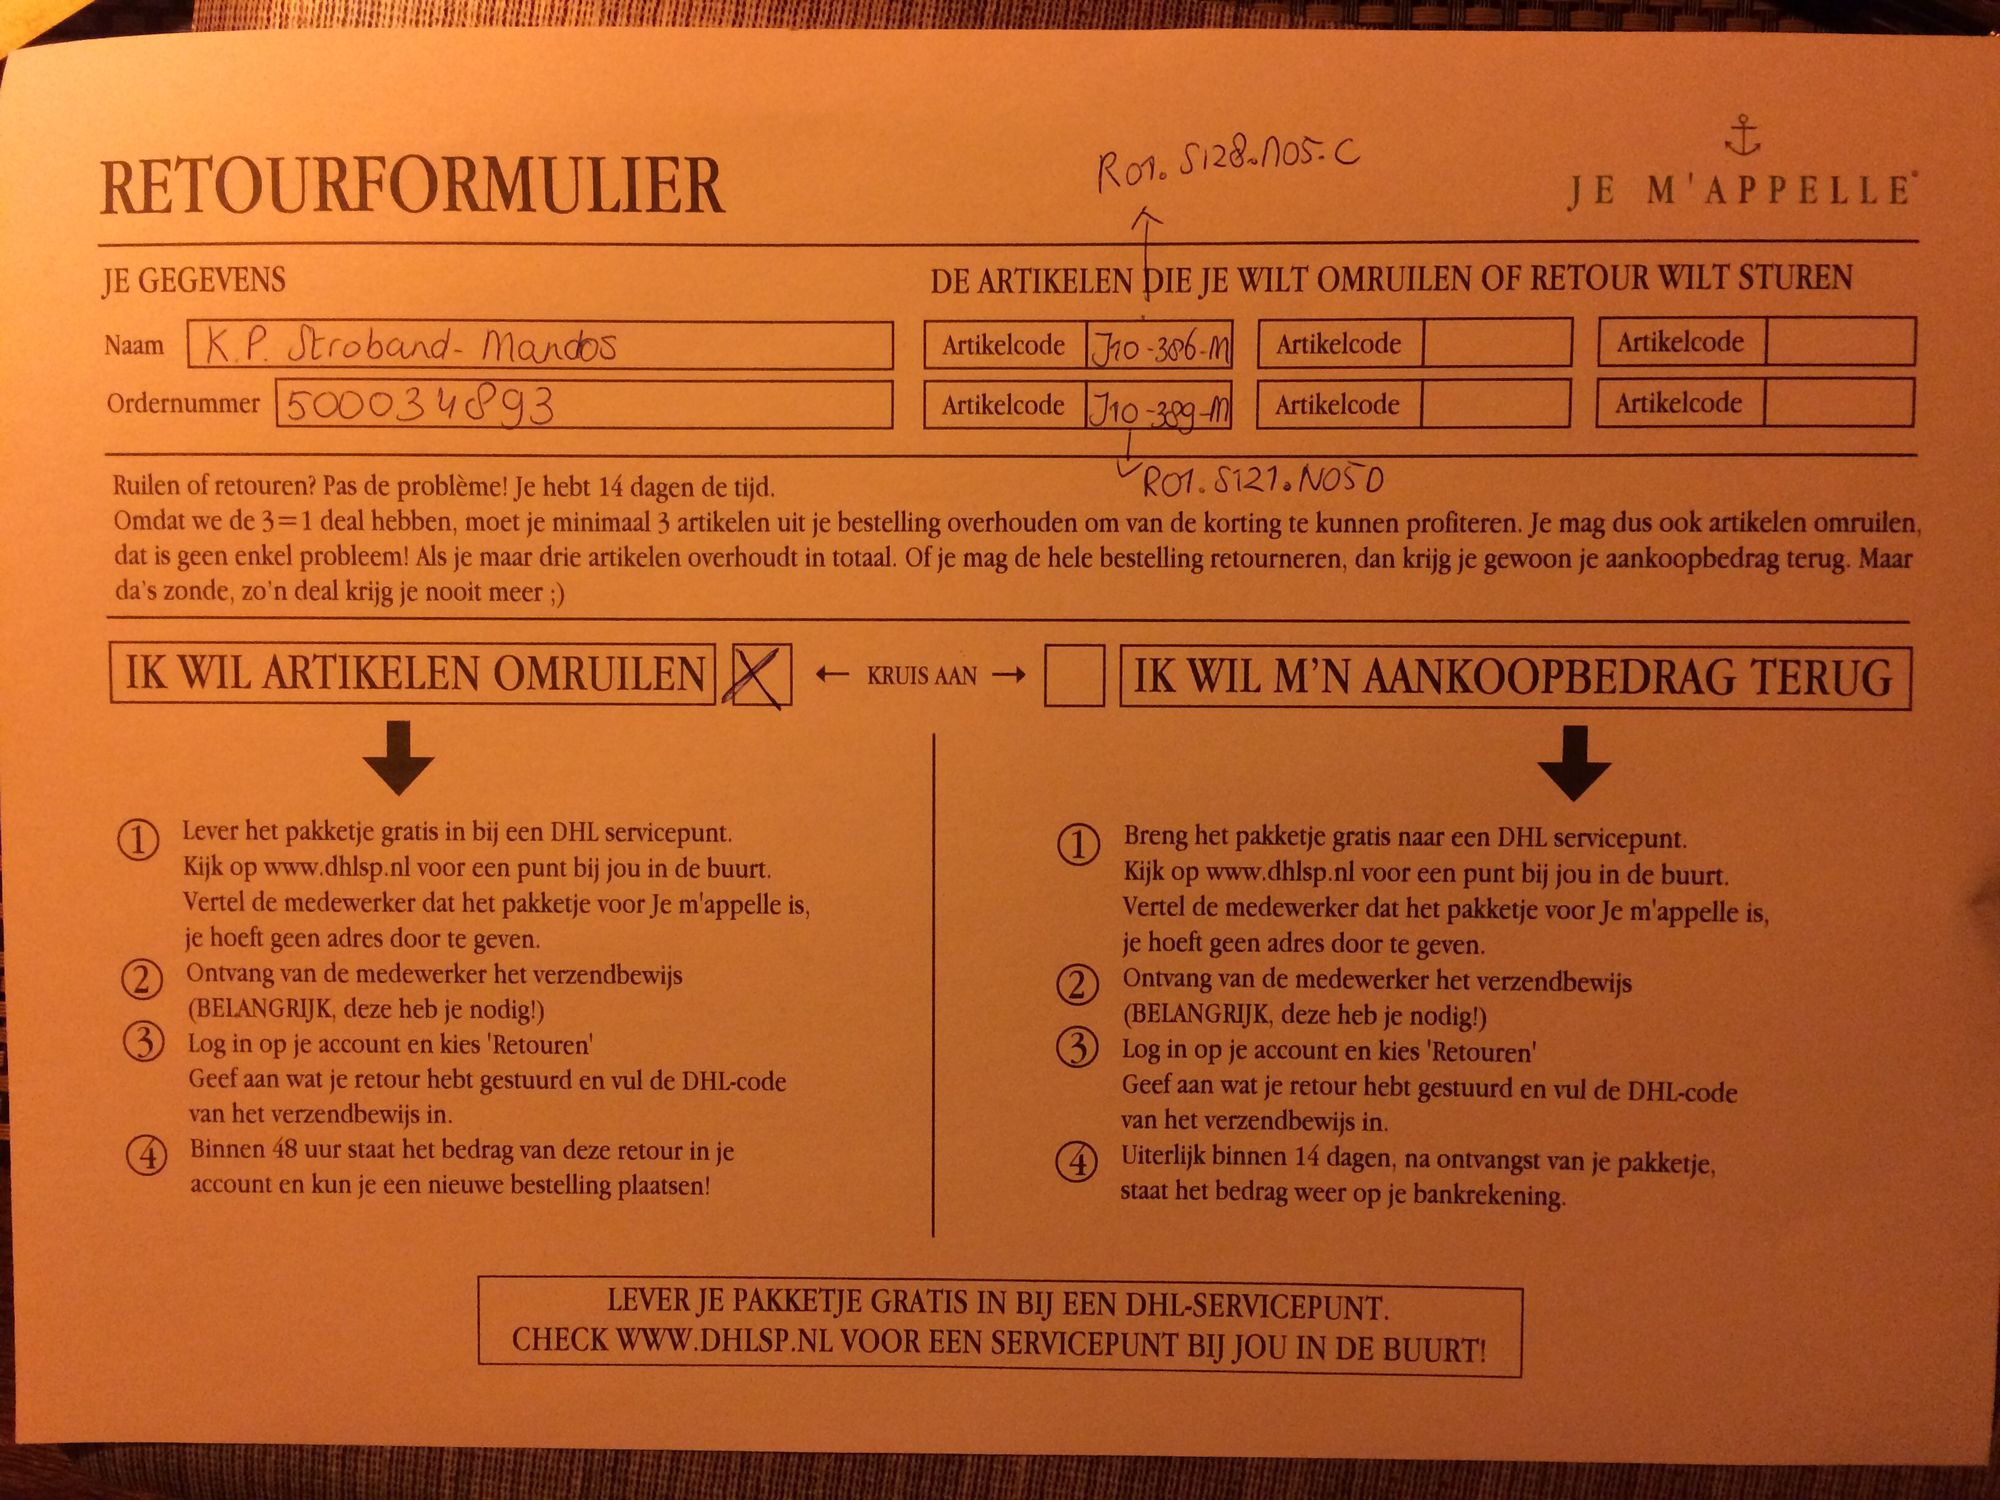 R01.S128.N05.C
RETOURFORMULIER
JE M'APPELLE
JE GEGEVENS
DE ARTIKELEN DIE JE WILT OMRUILEN OF RETOUR WILT STUREN
Naam K.P. Stroband-Mandos
Artikelcode J10-386-M Artikelcode Artikelcode
Ordernummer 500034893
Artikelcode J10-389-M Artikelcode Artikelcode
R01.S121.N05D
Ruilen of retouren? Pas de problème! Je hebt 14 dagen de tijd.
Omdat we de 3=1 deal hebben, moet je minimaal 3 artikelen uit je bestelling overhouden om van de korting te kunnen profiteren. Je mag dus ook artikelen omruilen,
dat is geen enkel probleem! Als je maar drie artikelen overhoudt in totaal. Of je mag de hele bestelling retourneren, dan krijg je gewoon je aankoopbedrag terug. Maar
da's zonde, zo'n deal krijg je nooit meer ;)
IK WIL ARTIKELEN OMRUILEN X ← KRUIS AAN → IK WIL M'N AANKOOPBEDRAG TERUG
1 Lever het pakketje gratis in bij een DHL servicepunt.
Kijk op www.dhlsp.nl voor een punt bij jou in de buurt.
Vertel de medewerker dat het pakketje voor Je m'appelle is,
je hoeft geen adres door te geven.
2 Ontvang van de medewerker het verzendbewijs
(BELANGRIJK, deze heb je nodig!)
3 Log in op je account en kies 'Retouren'
Geef aan wat je retour hebt gestuurd en vul de DHL-code
van het verzendbewijs in.
4 Binnen 48 uur staat het bedrag van deze retour in je
account en kun je een nieuwe bestelling plaatsen!
1 Breng het pakketje gratis naar een DHL servicepunt.
Kijk op www.dhlsp.nl voor een punt bij jou in de buurt.
Vertel de medewerker dat het pakketje voor Je m'appelle is,
je hoeft geen adres door te geven.
2 Ontvang van de medewerker het verzendbewijs
(BELANGRIJK, deze heb je nodig!)
3 Log in op je account en kies 'Retouren'
Geef aan wat je retour hebt gestuurd en vul de DHL-code
van het verzendbewijs in.
4 Uiterlijk binnen 14 dagen, na ontvangst van je pakketje,
staat het bedrag weer op je bankrekening.
LEVER JE PAKKETJE GRATIS IN BIJ EEN DHL-SERVICEPUNT.
CHECK WWW.DHLSP.NL VOOR EEN SERVICEPUNT BIJ JOU IN DE BUURT!